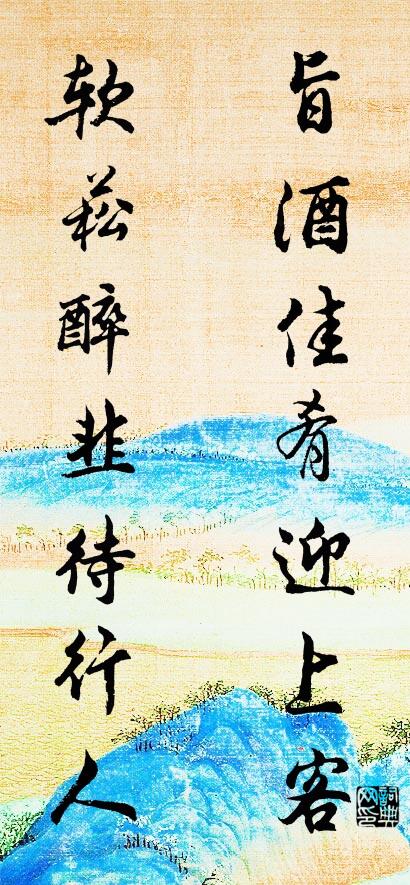 旨酒佳肴迎上客
软菘醉韭待行人